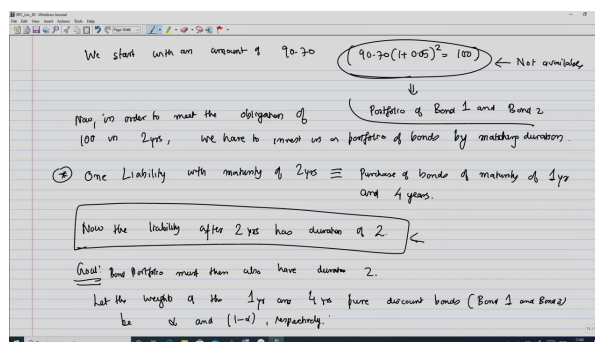 SPC_Lec_30 - Windows Journal
File Edit View Insert Actions Tools Help
Page Width
We start with an amount of 90.70 (90.70(1+0.05)² = 100) ← Not available,
⇓
Portfolio of Bond 1 and Bond 2
Now, in order to meet the obligation of
100 in 2yrs, we have to invest in a portfolio of bonds by matching duration.
(*) One Liability with maturity of 2yrs ≡ Purchase of bonds of maturity of 1yr
and 4 years.
Now the liability after 2 yrs has duration of 2. ←
Goal: Bond Portfolio must then also have duration 2.
Let the weights of the 1yr and 4 yrs pure discount bonds (Bond 1 and Bond 2)
be α and (1-α), respectively.